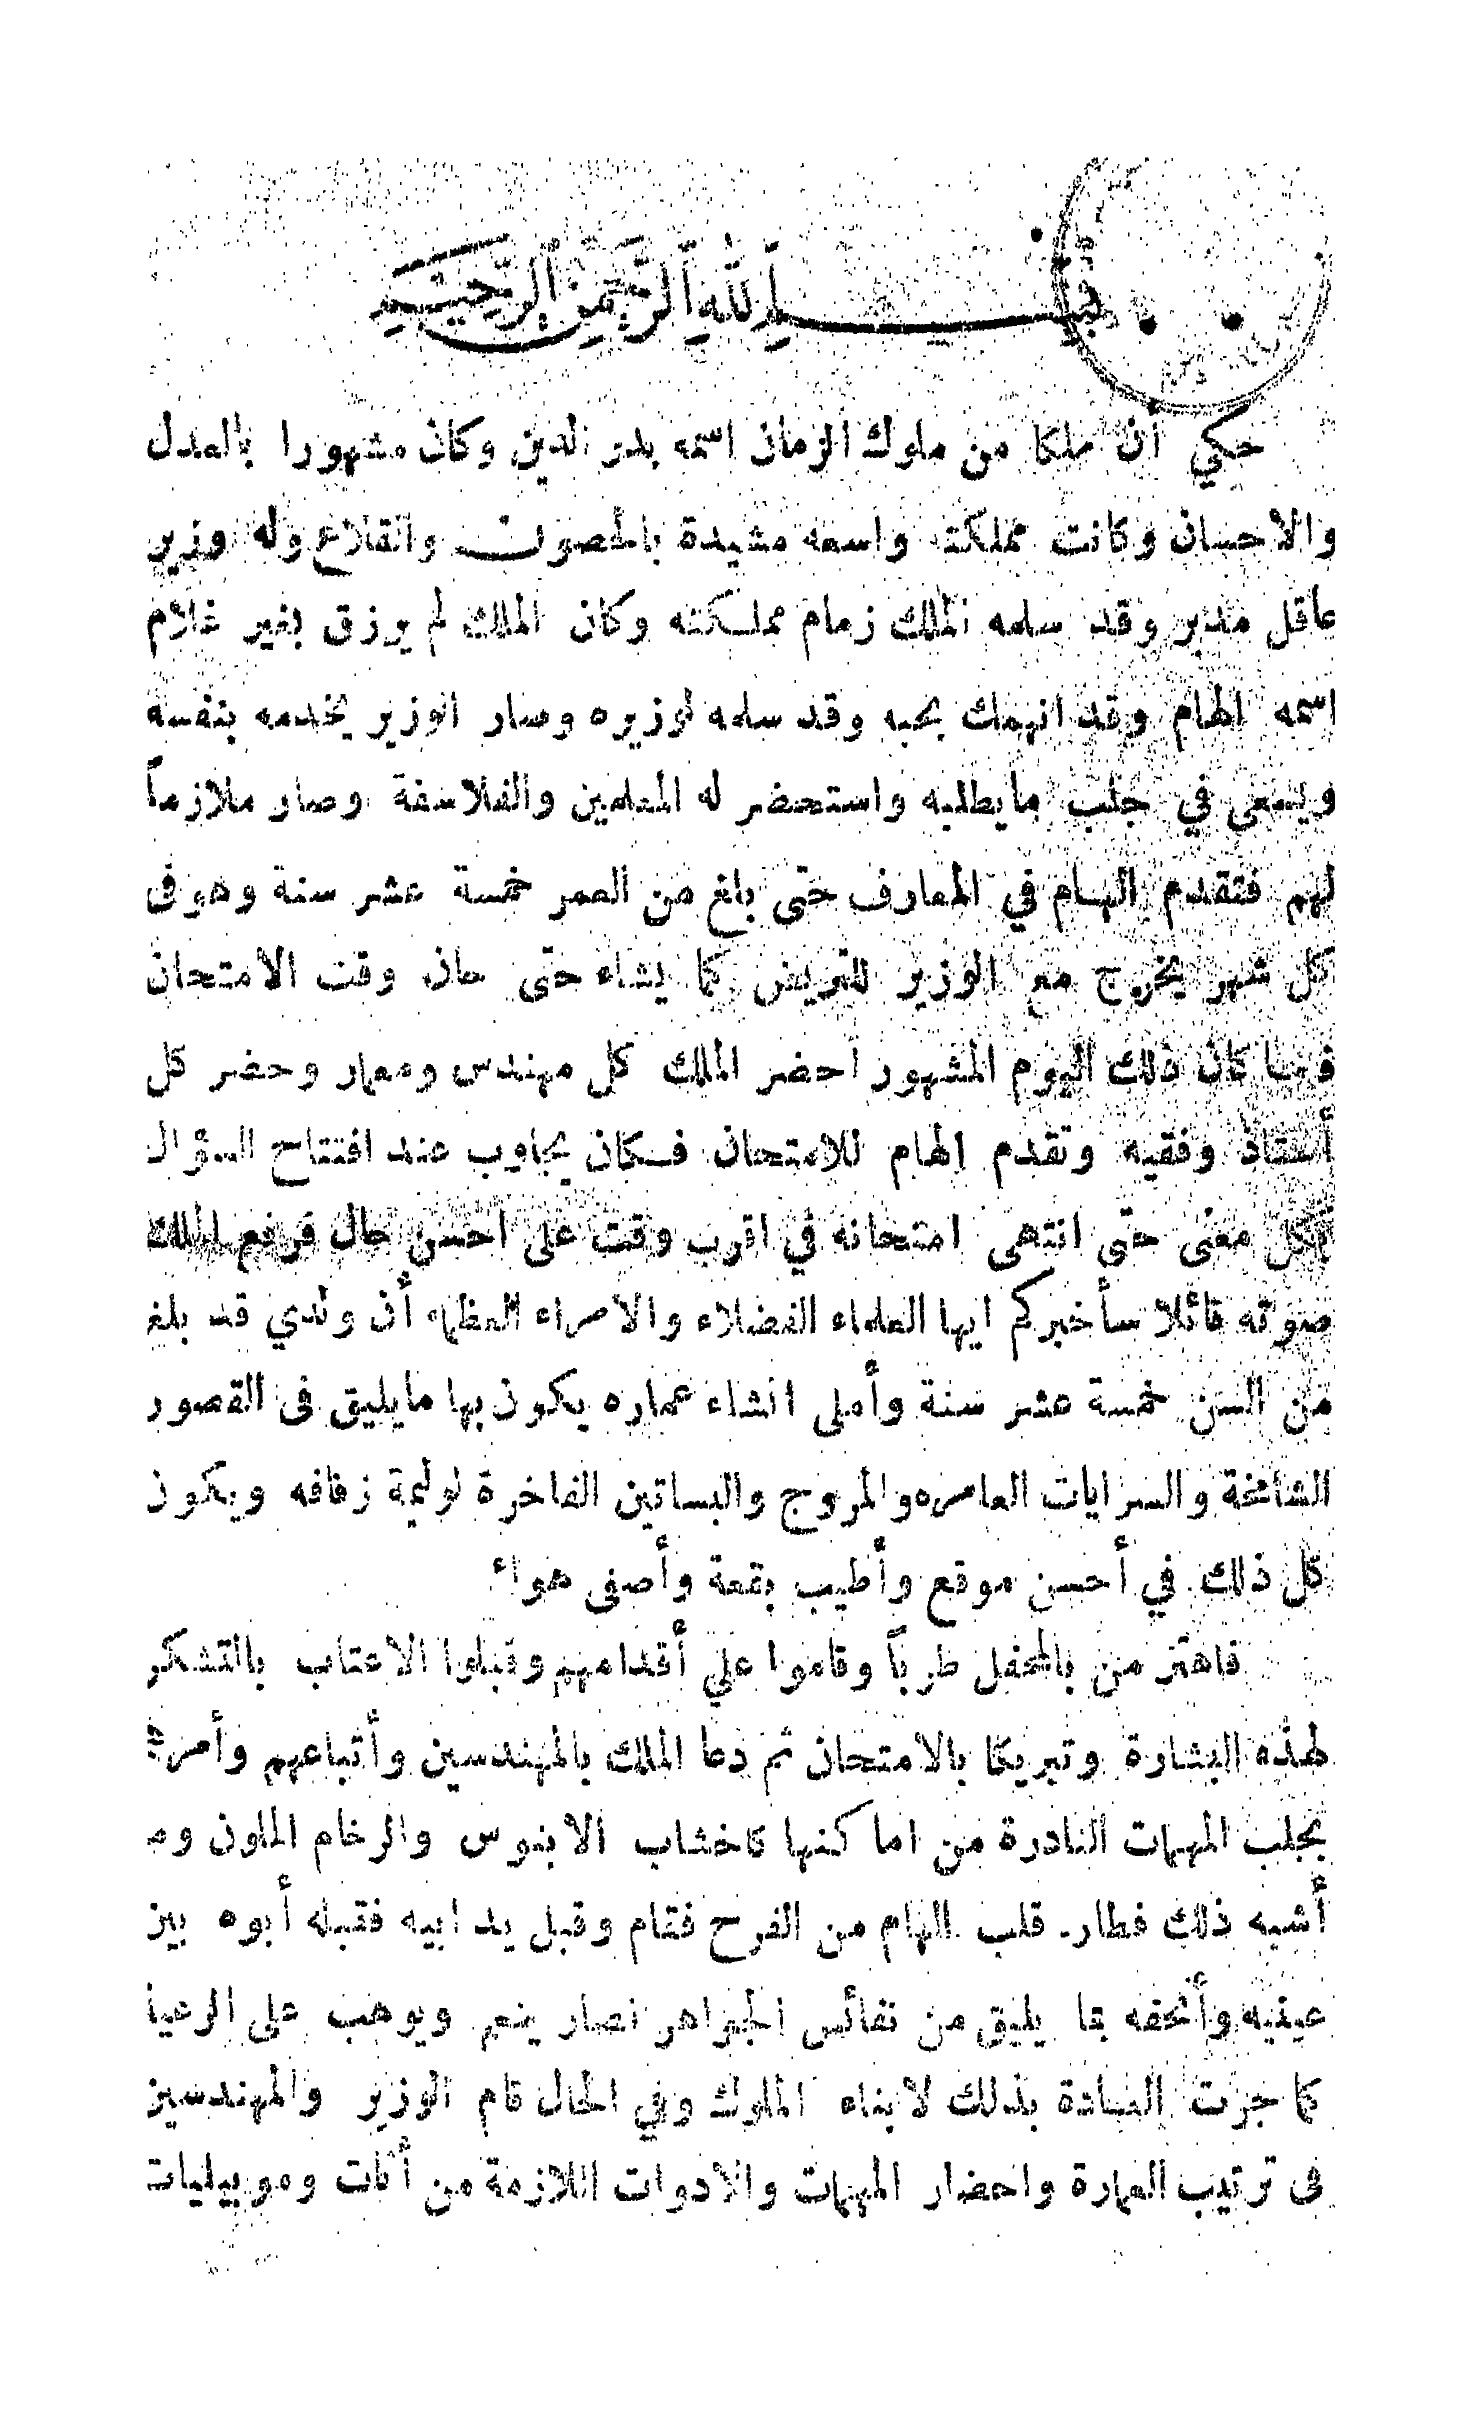 بسم الله الرحمن الرحيم
حكي أن ملكا من ملوك الزمان اسمه بدر الدين وكان مشهورا بالعدل
والاحسان وكانت مملكته واسعه مشيدة بالحصون والقلاع وله وزير
عاقل مدبر وقد سلمه الملك زمام مملكته وكان الملك لم يرزق بغير غلام
اسمه الهام وقد انهمك بحبه وقد سلمه لوزيره وصار الوزير يخدمه بنفسه
ويسعى في جلب مايطلبه واستحضر له المعلمين والفلاسفة وصار ملازماً
لهم فتقدم الهام في المعارف حتى بلغ من العمر خمسة عشر سنة وهو فى
كل شهر يخرج مع الوزير للتريض كما يشاء حتى حان وقت الامتحان
فلما كان ذلك اليوم المشهور أحضر الملك كل مهندس ومعمار وحضر كل
أستاذ وفقيه وتقدم الهام للامتحان فكان يجاوب عند افتتاح السؤال
بكل معنى حتى انتهى امتحانه في اقرب وقت على احسن حال فرفع الملك
صوته قائلا سأخبركم ايها العلماء الفضلاء والامراء العظماء أن ولدي قد بلغ
من السن خمسة عشر سنة وأملى انشاء عماره يكون بها مايليق فى القصور
الشامخة والسرايات العامره والمروج والبساتين الفاخرة لوليمة زفافه ويكون
كل ذلك في أحسن موقع وأطيب بقعة وأصفى هواء
فاهتز من بالمحفل طرباً وقاموا علي أقدامهم وقبلوا الاعتاب بالتشكر
لهذه البشارة وتبريكا بالامتحان ثم دعا الملك بالمهندسين وأتباعهم وأمرهم
بجلب المهمات النادرة من اماكنها كاخشاب الابنوس والرخام الملون وم
أشبه ذلك فطار قلب الهام من الفرح فقام وقبل يد ابيه فقبله أبوه بين
عينيه وأتحفه بما يليق من نفائس الجواهر فصار ينعم ويوهب على الرعيا
كما جرت العادة بذلك لابناء الملوك وفي الحال قام الوزير والمهندسين
فى ترتيب العمارة واحضار المهمات والادوات اللازمة من أثاث وموبيليات